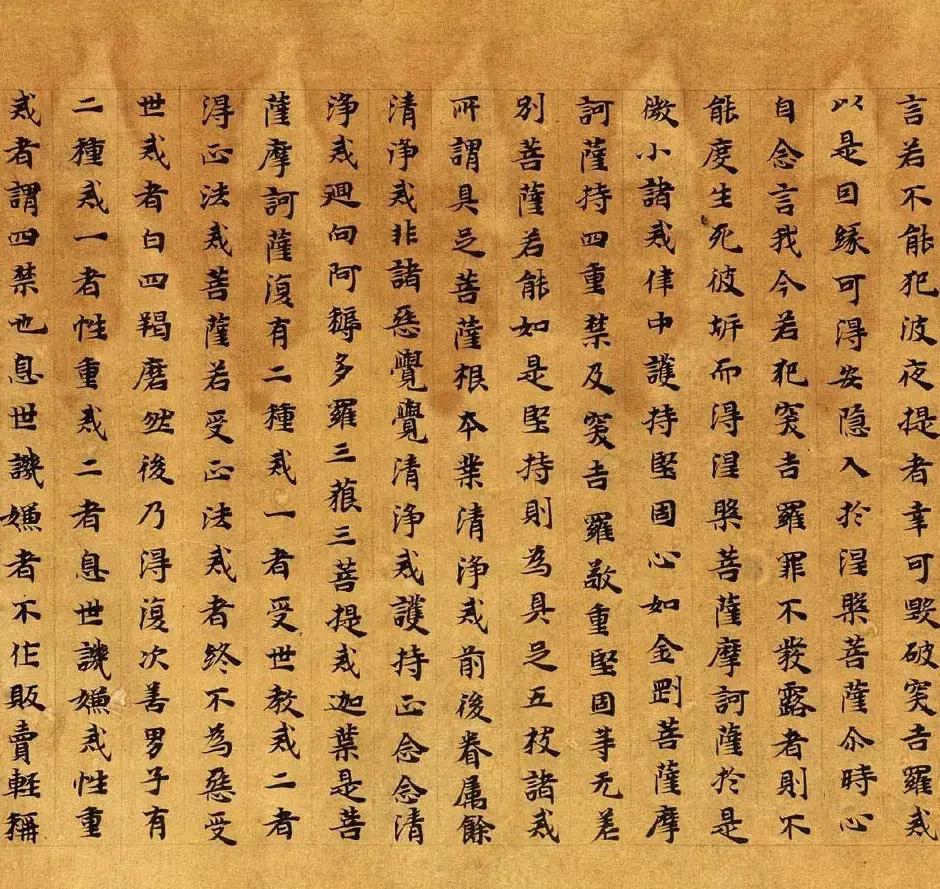 言若不能犯波夜提者幸可毀破突吉羅戒
以是因縁可得安隐入於涅槃菩薩尒時心
自念言我今若犯突吉羅罪不發露者則不
能度生死彼㟁而得涅槃菩薩摩訶薩於是
微小諸戒律中護持堅固心如金剛菩薩摩
訶薩持四重禁及突吉羅敬重堅固等无差
別菩薩若能如是堅持則為具足五枝諸戒
所謂具足菩薩根本業清淨戒前後眷属餘
清淨戒非諸惡覺覺清淨戒護持正念念清
淨戒迴向阿耨多羅三藐三菩提戒迦葉是菩
薩摩訶薩復有二種戒一者受世教戒二者
得正法戒菩薩若受正法戒者終不為惡受
世戒者白四羯磨然後乃得復次善男子有
二種戒一者性重戒二者息世譏嫌戒性重
戒者謂四禁也息世譏嫌者不作販賣軽稱